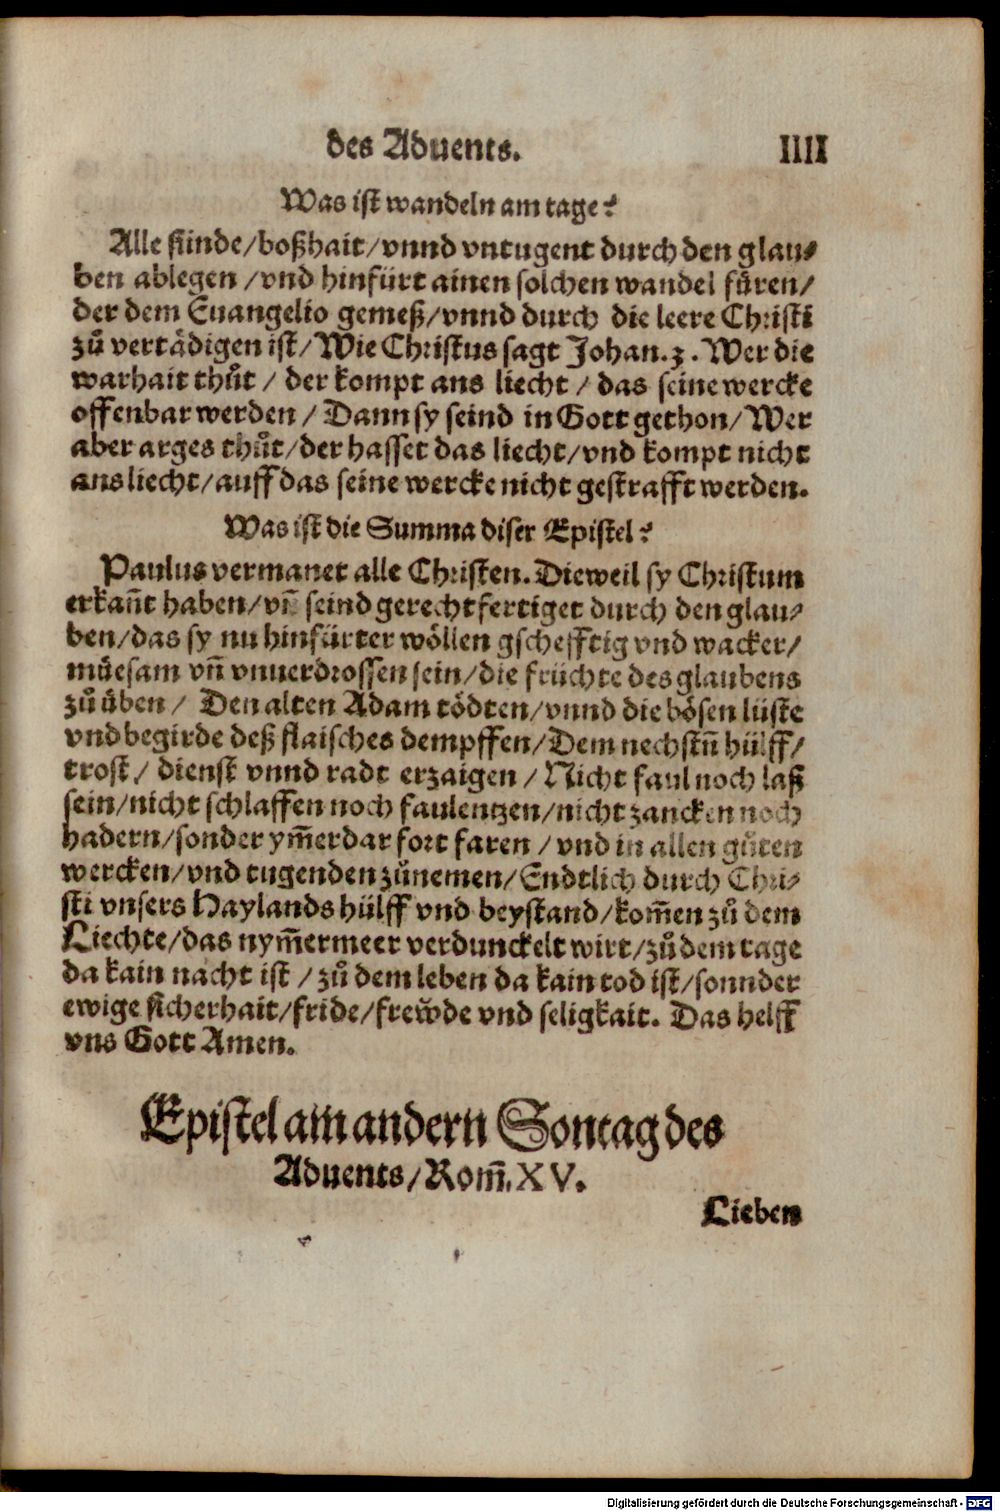 des Aduents. IIII
Was ist wandeln am tage?
Alle sünde/boßhait/vnnd vntugent durch den glau-
ben ablegen /vnd hinfürt ainen solchen wandel füren/
der dem Euangelio gemeß/vnnd durch die leere Christi
zů vertädigen ist/Wie Christus sagt Johan.3. Wer die
warhait thůt / der kompt ans liecht / das seine wercke
offenbar werden / Dann sy seind in Gott gethon/Wer
aber arges thůt/der hasset das liecht/vnd kompt nicht
ans liecht/auff das seine wercke nicht gestrafft werden.
Was ist die Summa diser Epistel?
Paulus vermanet alle Christen. Dieweil sy Christum
erkañt haben/vñ seind gerechtfertiget durch den glau-
ben/das sy nu hinfürter wöllen gschefftig vnd wacker/
müesam vñ vnuerdrossen sein/die früchte des glaubens
zů üben / Den alten Adam tödten/vnnd die bösen lüste
vnd begirde deß flaisches dempffen/Dem nechstñ hülff/
trost/ dienst vnnd radt erzaigen /Nicht faul noch laß
sein/nicht schlaffen noch faulentzen/nicht zancken noch
hadern/sonder ym̃erdar fort faren /vnd in allen gůten
wercken/vnd tugenden zůnemen/Endtlich durch Chri-
sti vnsers Haylands hülff vnd beystand/kom̃en zů dem
Liechte/das nym̃ermeer verdunckelt wirt/zů dem tage
da kain nacht ist /zů dem leben da kain tod ist/sonnder
ewige sicherhait/fride/frewde vnd seligkait. Das helff
vns Gott Amen.
Epistel am andern Sontag des
Aduents/Rom̃.XV.
Lieben
Digitalisierung gefördert durch die Deutsche Forschungsgemeinschaft - DFG